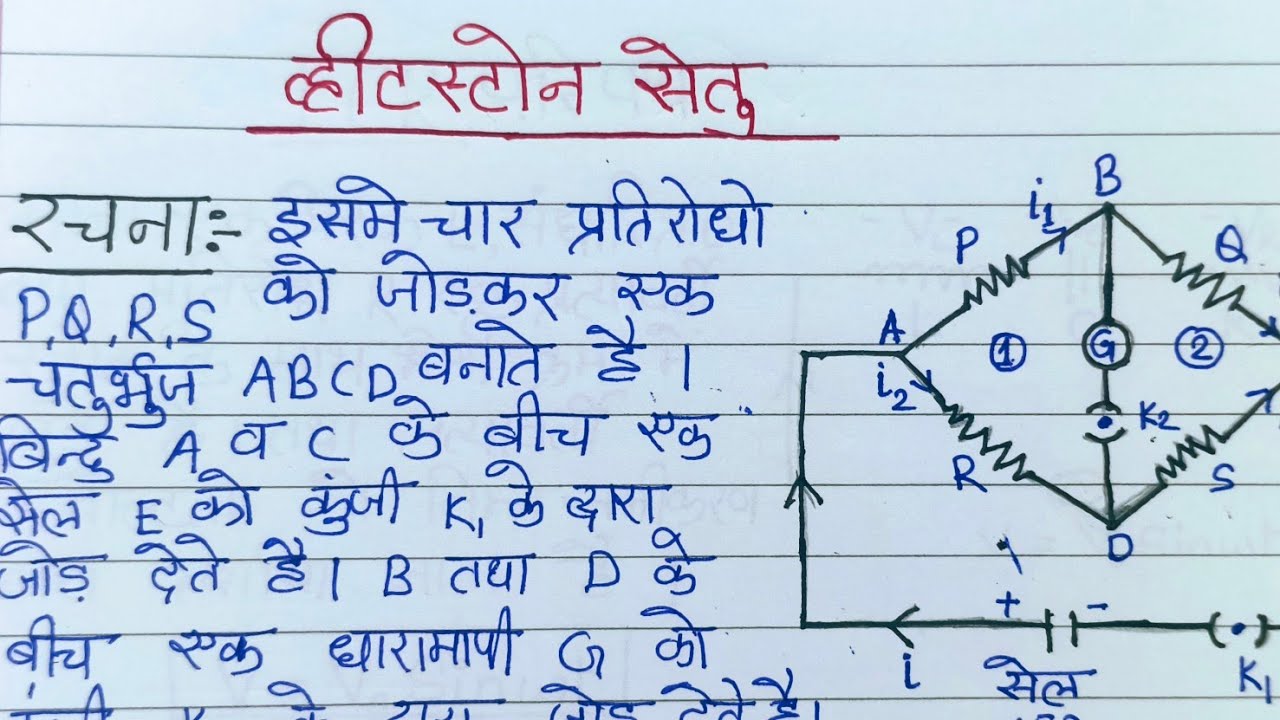 व्हीटस्टोन सेतु
रचना:- इसमे चार प्रतिरोधो
P,Q,R,S को जोड़कर एक
चतुर्भुज ABCD बनाते है।
बिन्दु A व C के बीच एक
सैल E को कुंजी K₁ के द्वारा
जोड़ देते है। B तथा D के
बीच एक धारामापी G को
के द्वारा जोड़ देते है।
B
i₁
P
Q
A
1
G
2
i₂
K2
R
S
D
+ -
i
सेल
K1